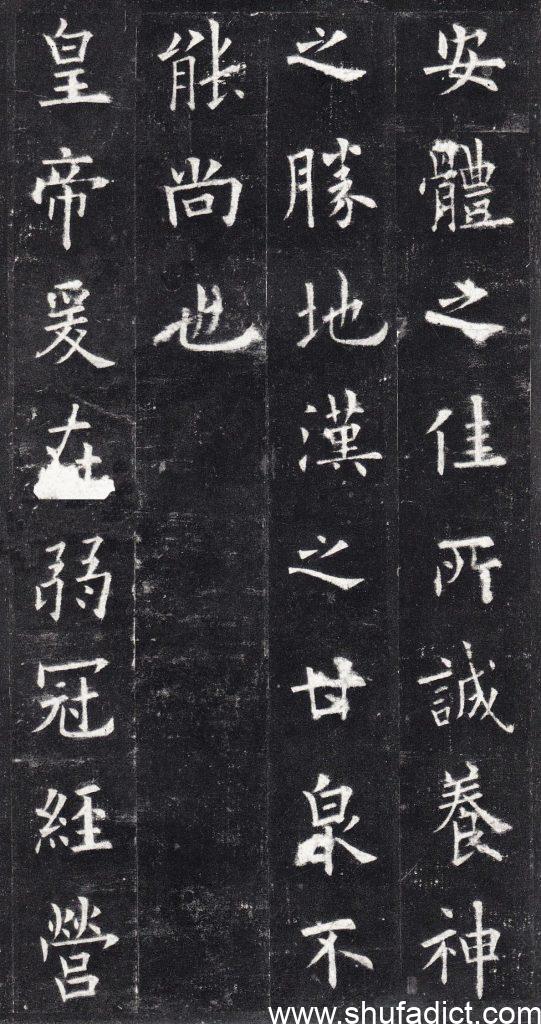 安體之佳所誠養神
之勝地漢之甘泉不
能尚也
皇帝爰在弱冠經營
www.shufadict.com